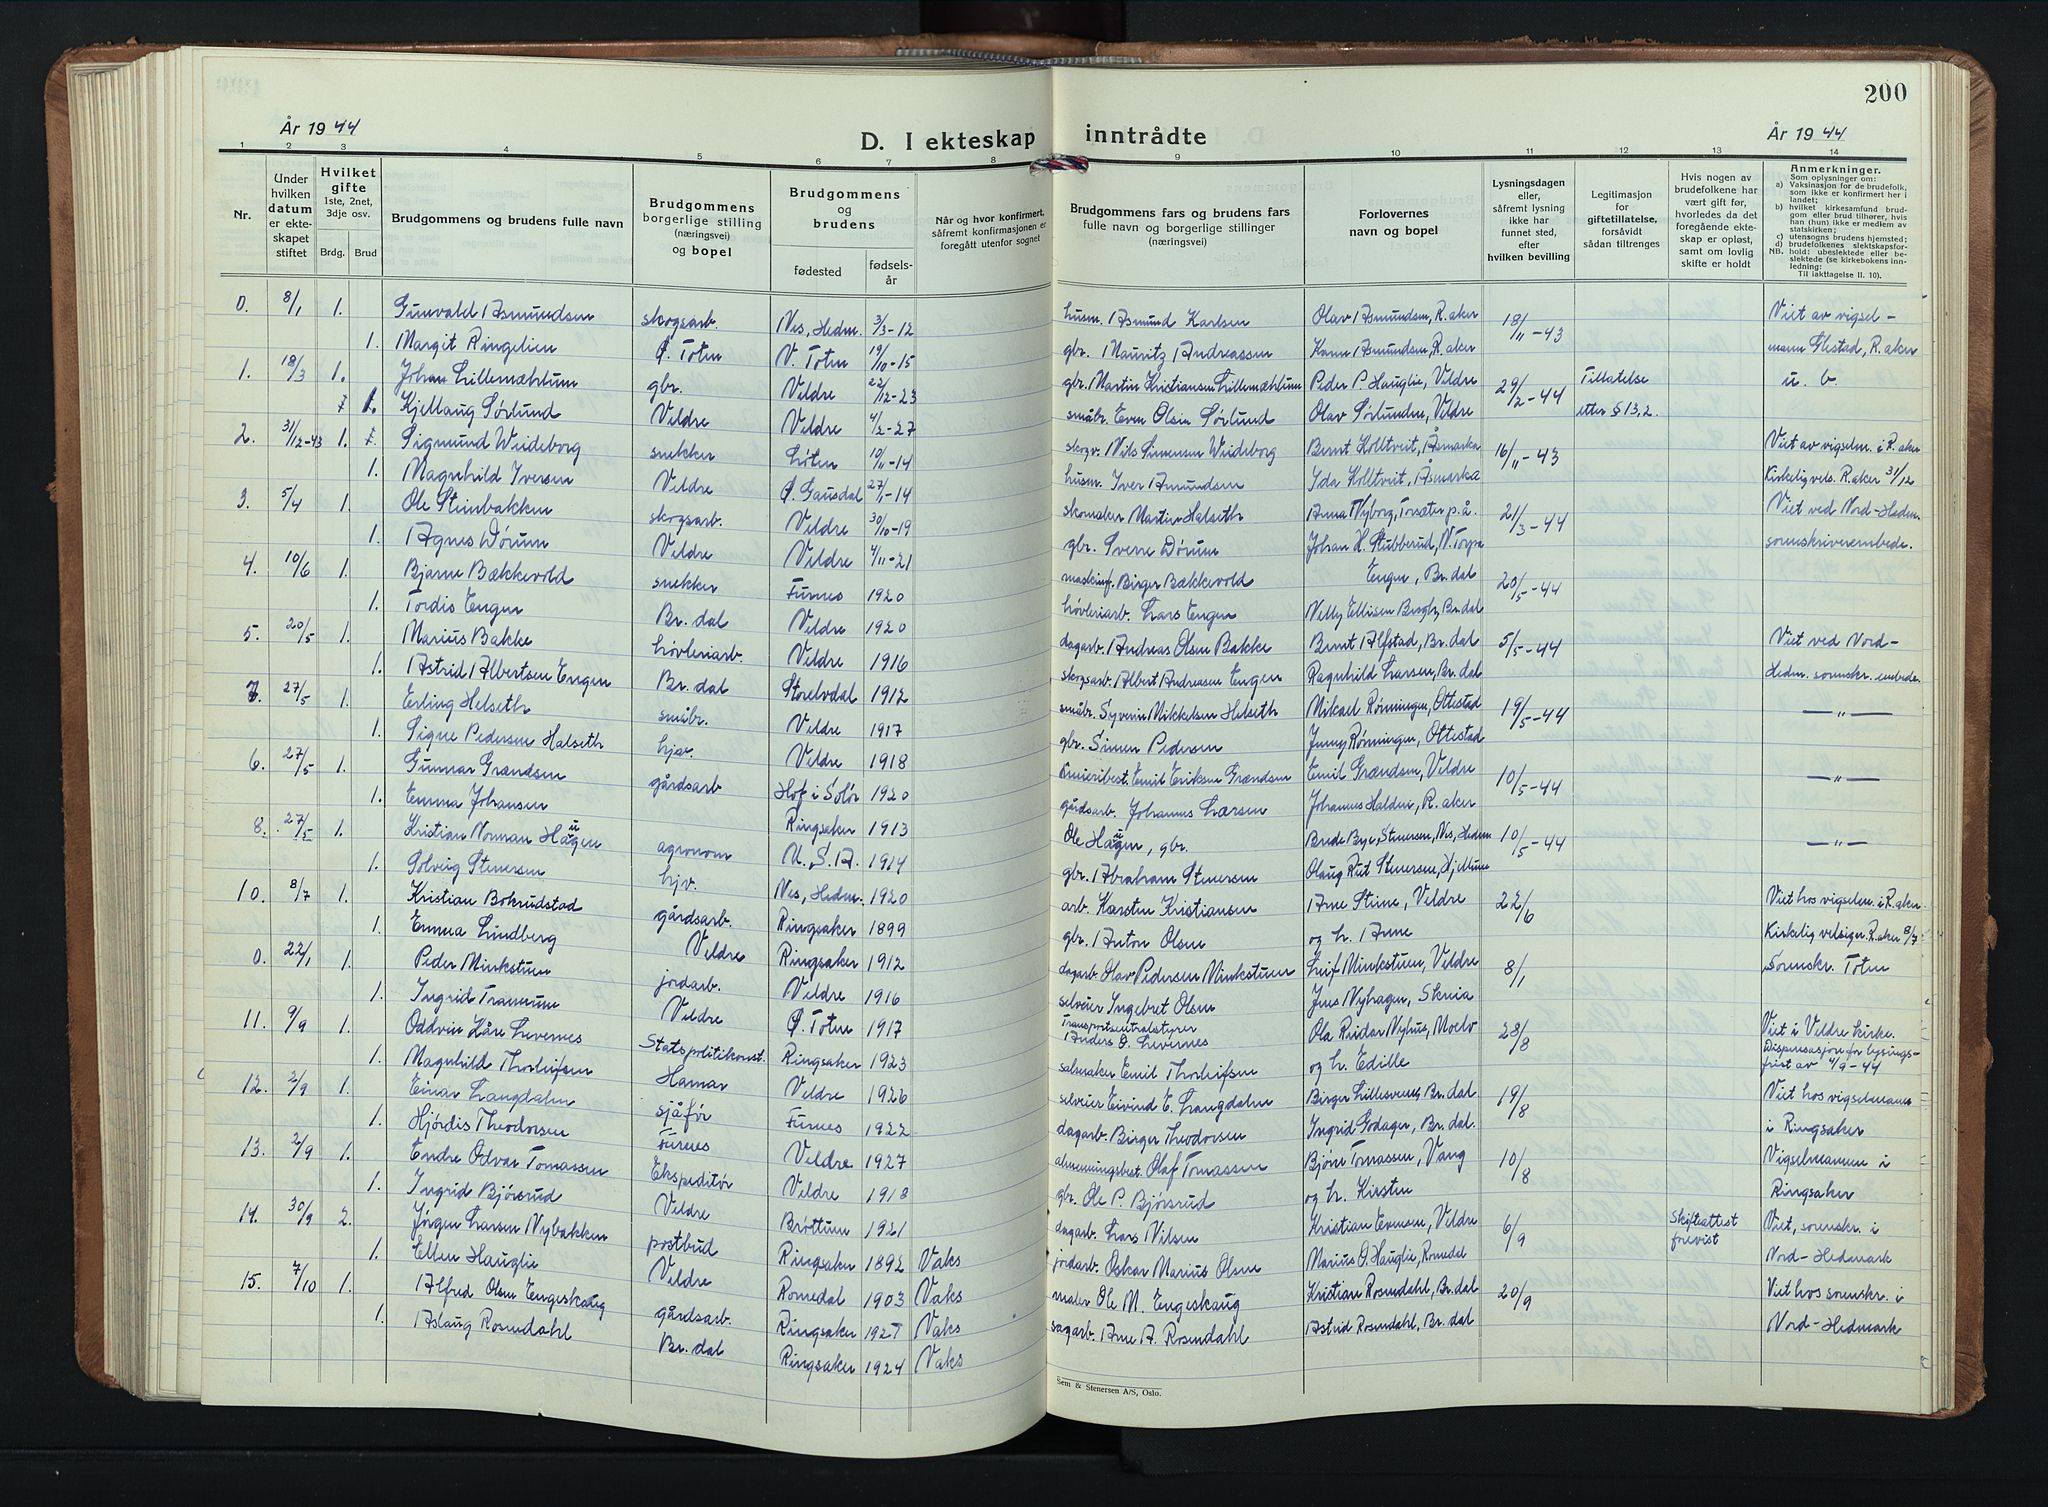 200
År 1944
D. I ekteskap inntrådte
År 1944
1 2 3 4 5 6 7 8 9 10 11 12 13 14
Nr.
Under hvilken datum er ekteskapet stiftet
Hvilket gifte 1ste, 2net, 3dje osv.
Brdg. Brud
Brudgommens og brudens fulle navn
Brudgommens borgerlige stilling (næringsvei) og bopel
Brudgommens og brudens
fødested
fødselsår
Når og hvor konfirmert, såfremt konfirmasjonen er foregått utenfor sognet
Brudgommens fars og brudens fars fulle navn og borgerlige stillinger (næringsvei)
Forlovernes navn og bopel
Lysningsdagen eller, såfremt lysning ikke har funnet sted, efter hvilken bevilling
Legitimasjon for giftetillatelse, forsåvidt sådan tiltrenges
Hvis nogen av brudefolkene har vært gift før, hvorledes da det foregående ekteskap er opløst, samt om lovlig skifte er holdt
Anmerkninger.
Som oplysninger om:
a) Vaksinasjon for de brudefolk, som ikke er konfirmert her i landet;
b) hvilket kirkesamfund brudgom eller brud tilhører, hvis han (hun) ikke er medlem av statskirken;
c) utensogns brudens hjemsted;
d) brudefolkenes slektskapsforhold: ubeslektede eller beslektede (se kirkebokens innledning:
NB. Til iakttagelse II. 10).
0. 8/1 1. Gunvald Asmundsen skogsarb. Nes, Hedm. 3/3-12 husm. Asmund Karlsen Olav Asmundsen, R.aker 18/11-43 Viet av vigsel-
1. Margit Ringelien Ø. Toten V. Toten 19/10-15 gbr. Mauritz Andreassen Karen Asmundsen, R.aker mann Glestad, R.aker
1. 18/3 1. Johan Lillemæhlum gbr. Veldre 22/12-23 gbr. Martin Kristiansen Lillemæhlum Peder P. Hauglie, Veldre 29/2-44 Tillatelse u. b.
1. Kjellaug Sørlund Veldre Veldre 4/2-27 småbr. Even Olsen Sørlund Olav Sørlunden, Veldre etter § 13,2.
2. 31/12-43 1. Sigmund Weideborg snekker Løten 10/11-14 skogv. Nils Simensen Weideborg Bernt Kolltveit, Åsmarka 16/11-43 Viet av vigselm. i R.aker
1. Magnhild Iversen Veldre Ø. Gausdal 27/1-14 husm. Iver Amundsen Ida Kolltveit, Åsmarka Kirkelig vels. R.aker 31/12
3. 5/4 1. Ole Steinbakken skogsarb. Veldre 30/10-19 skomaker Martin Halseth Anna Nyborg, Torsæter p.å. 21/3-44 Viet ved Nord-Hedm.
1. Agnes Dørum Veldre Veldre 4/11-21 gbr. Sverre Dørum Johan H. Stubberud, N. Torpa sorenskriverembede.
4. 10/6 1. Bjarne Bækkevold snekker Furnes 1920 maskinf. Birger Bækkevold Engen, Br.dal 20/5-44
1. Tordis Engen Br.dal Veldre 1920 høvleriarb. Lars Engen Nelly Ellisen Bergby, Br.dal
5. 20/5 1. Marius Bakke høvleriarb. Veldre 1916 dagarb. Andreas Olsen Bakke Bernt Alfstad, Br.dal 5/5-44 Viet ved Nord-
1. Astrid Albertsen Engen Br.dal Storelvdal 1912 skogsarb. Albert Andreasen Engen Ragnhild Larsen, Br.dal Hedm. sorenskr. embede.
7. 27/5 1. Erling Helseth småbr. Veldre 1917 småbr. Syverin Mikkelsen Helseth Mikael Rønningen, Ottestad 19/5-44 —„—
1. Signe Pedersen Halseth hjv. Veldre 1918 gbr. Simen Pedersen Jenny Rønningen, Ottestad
6. 27/5 1. Gunnar Grændsen gårdsarb Hof i Solør 1920 meieribest. Emil Eriksen Grændsen Emil Grændsen, Veldre 10/5-44 —„—
1. Emma Johansen Ringsaker 1913 gårdsarb. Johannes Larsen Johannes Halden, R.aker
8. 27/5 1. Kristian Norman Haugen agronom U.S.A. 1914 Ole Haugen, gbr. Brede Bye, Stenersen, Nes, Hedm 10/5-44 —„—
1. Solveig Stenersen hjv. Nes, Hedm. 1920 gbr. Abraham Stenersen Olaug Rut Stenersen, Hjellum
10. 8/7 1. Kristian Bokrudstad gårdsarb. Ringsaker 1899 arb. Karsten Kristiansen Arne Stene, Veldre 22/6 Viet hos vigselm. i R.aker.
1. Emma Lindberg Veldre Ringsaker 1912 gbr. Anton Olsen og L. Arne Kirkelig velsign. R.aker 8/7
0. 22/1 1. Peder Minkstuen jordarb. Veldre 1916 dagarb. Olav Pedersen Minkstuen Leif Minkstuen, Veldre 8/1 Sorenskr. Toten
1. Ingrid Tranrum Veldre Ø. Toten 1917 selveier Ingebret Olsen Jens Nyhagen, Skreia
11. 9/9 1. Oddvin Kåre Levernes Statspolitikonst. Ringsaker 1923 Transportsentralstyrer Anders O. Levernes Ola Reidar Nyhus, Moelv 28/8 Viet i Veldre kirke.
1. Magnhild Thorleifsen Hamar Veldre 1926 salmaker Emil Thorleifsen og L. Edille Dispensasjon for lysings-frist av 4/9-44
12. 2/9 1. Einar Langdalen sjåfør Furnes 1922 selveier Eivind E. Langdalen Birger Lillesveen, Br.dal 19/8 Viet hos vigselmann
1. Hjördis Theodorsen Furnes Veldre 1927 dagarb. Birger Theodorsen Ingrid Godager, Br.dal. i Ringsaker
13. 2/9 1. Endre Odvar Tomassen Ekspeditör Veldre 1918 almenningsbest. Olaf Tomassen Bjørn Tomassen, Vang 10/8 Vigselmannen i
1. Ingrid Bjørsrud Veldre Brøttum 1921 gbr. Ole P. Bjørsrud og L. Kirsten Ringsaker
14. 30/9 2. Jørgen Larsen Nybakken postbud Ringsaker 1892 Vaks dagarb. Lars Nilsen Kristian Evensen, Veldre 6/9 Skifteattest frevist Viet, sorenskr. i
1. Ellen Hauglie Veldre Romedal 1903 Vaks jordarb. Oskar Marius Olsen Marius O. Hauglie, Romedal Nord-Hedmark
15. 7/10 1. Alfred Olsen Engeskaug gårdsarb. Ringsaker 1921 Vaks maler Ole M. Engeskaug Kristian Rosendahl, Br.dal 20/9 Viet hos sorenskr. i
1. Aslaug Rosendahl Br.dal Ringsaker 1924 Vaks sagarb. Arne A. Rosendahl Astrid Rosendahl, Br.dal Nord-Hedmark
Sem & Stenersen A/S, Oslo.